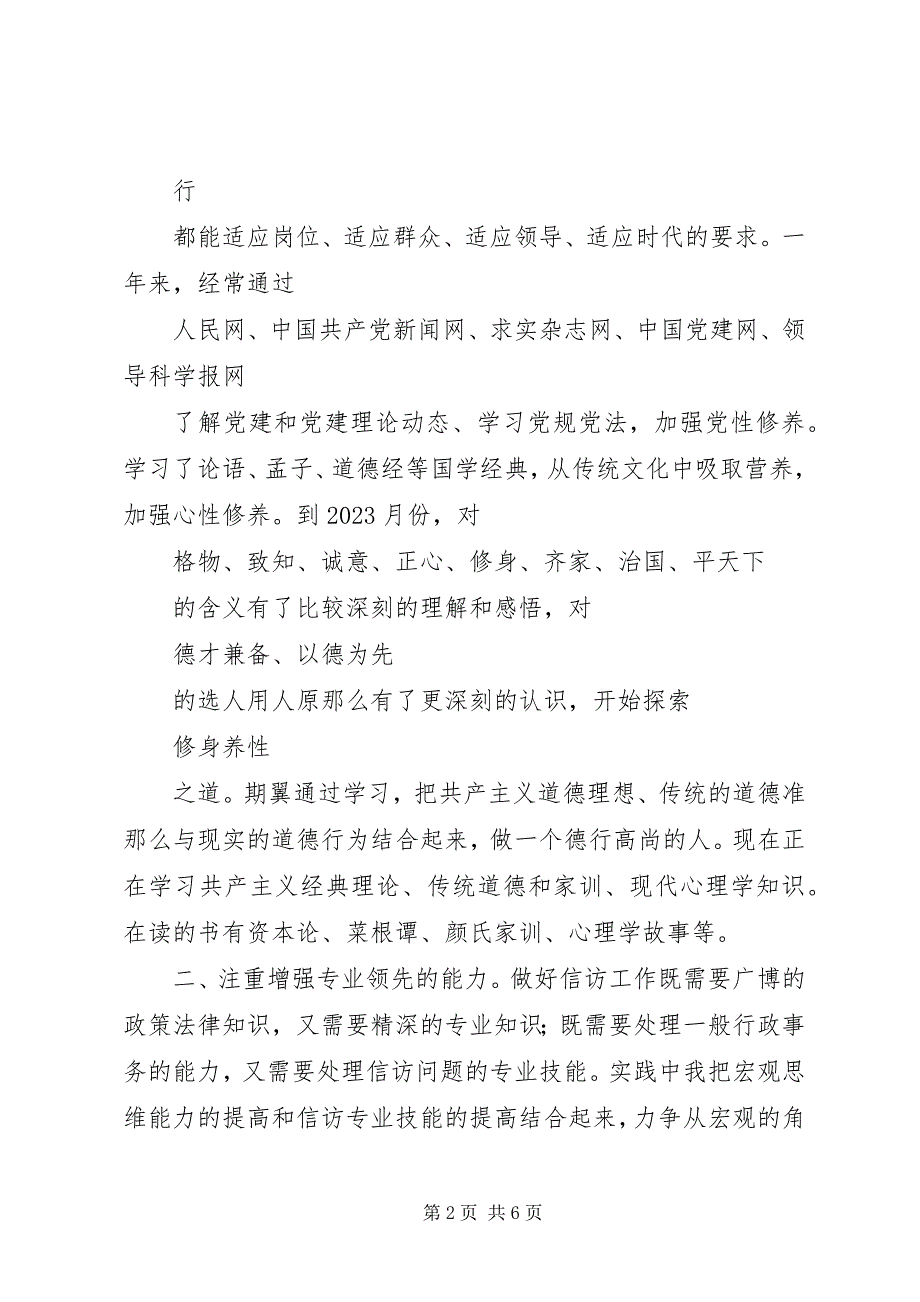 行
都能适应岗位、适应群众、适应领导、适应时代的要求。一
年来，经常通过
人民网、中国共产党新闻网、求实杂志网、中国党建网、领
导科学报网
了解党建和党建理论动态、学习党规党法，加强党性修养。
学习了论语、孟子、道德经等国学经典，从传统文化中吸取营养，
加强心性修养。到 2023 月份，对
格物、致知、诚意、正心、修身、齐家、治国、平天下
的含义有了比较深刻的理解和感悟，对
德才兼备、以德为先
的选人用人原那么有了更深刻的认识，开始探索
修身养性
之道。期翼通过学习，把共产主义道德理想、传统的道德准
那么与现实的道德行为结合起来，做一个德行高尚的人。现在正
在学习共产主义经典理论、传统道德和家训、现代心理学知识。
在读的书有资本论、菜根谭、颜氏家训、心理学故事等。
二、注重增强专业领先的能力。做好信访工作既需要广博的
政策法律知识，又需要精深的专业知识；既需要处理一般行政事
务的能力，又需要处理信访问题的专业技能。实践中我把宏观思
维能力的提高和信访专业技能的提高结合起来，力争从宏观的角
第 2 页 共 6 页